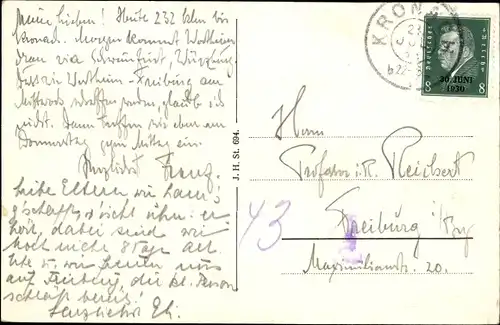 Meine Lieben! Heute 232 klm bis
Kronach. Morgen kommt Wertheim
dran via Schweinfurt, Würzburg.
Dass wir Wertheim - Freiburg am
Mittwoch schaffen werden, glaub ich
nicht. Dann treffen wir eben am
Donnerstag gegen Mittag ein.
Herzlichst Franz.
Liebe Eltern, wir haben's
geschafft, 's ist
hört, dabei sind wir
noch nicht 8 Tage alt
u. wir freuen uns
auf Freiburg,
schläft bereits!
Herzlichst
KRONACH
Deutsches Reich
8 8
30. JUNI
1930
J. H. St. 694.
Herrn
Professor i. R. Reichert
43
Freiburg i/Brg
Maximilianstr. 20.